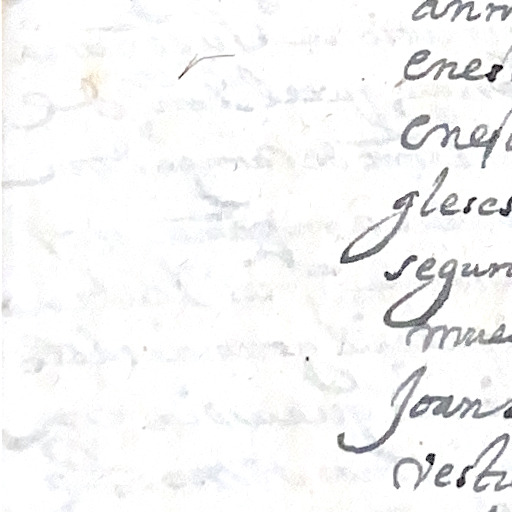 anm
enes
enes
glescs
segun
mue
Joan
vestu